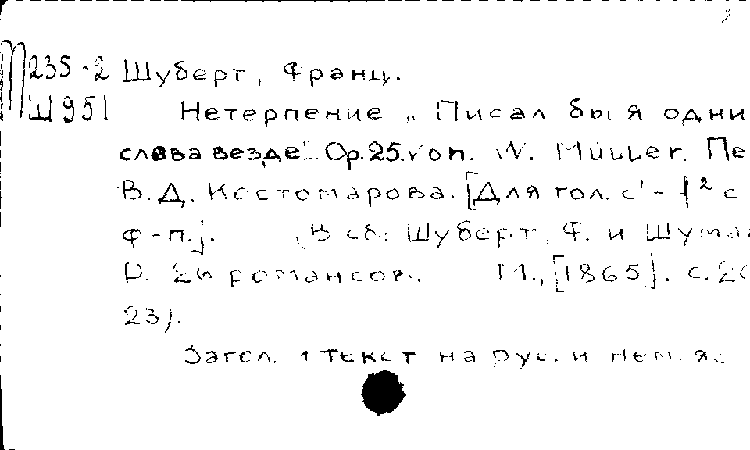 П235-2 Шуберт, Франц.
Ш951 Нетерпение „Писал бы я одни
слова везде". Op.25. von. W. Müller. Пе
В.Д. Костомарова. [Для гол. c¹ - f² с
ф-п.]. (В сб.: Шуберт, Ф. и Шуман
романсов. М., [1865]. с.20
23).
Загл. и текст на рус. и нем. яз